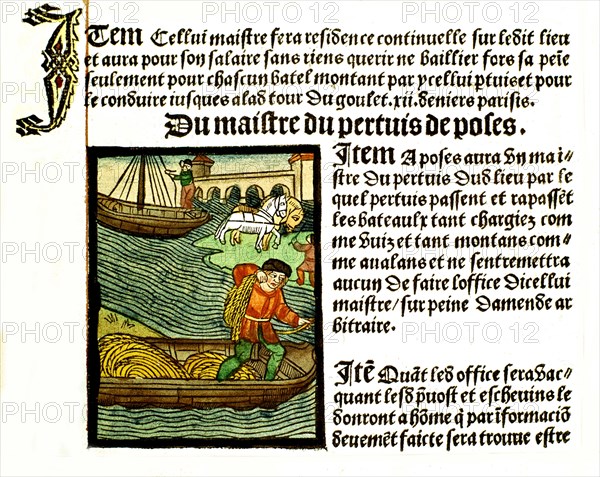 ITem Cellui maistre fera residence continuelle sur ledit lieu
et aura pour son salaire sans riens querir ne baillier fors sa peie
seulement pour chascun batel montant par ycellui ptuis et pour
le conduire iusques a lad tour Du goulet. xii. deniers parisis.
Du maistre du pertuis de poses.
Item A poses aura Vng mai-
stre Du pertuis Dud lieu par le
quel pertuis passent et rapassẽt
les bateaulx tant chargiez com
me Vuiz et tant montans com-
me aualans et ne sentremettra
aucun De faire loffice Dicellui
maistre / sur peine Damende ar
bitraire.
Itẽ Quãt led office sera Vac-
quant lesd p̃uost et escheuins le
donront a hõme q̃ par ĩformaciõ
deuemẽt faicte sera trouue estre
PHOTO12